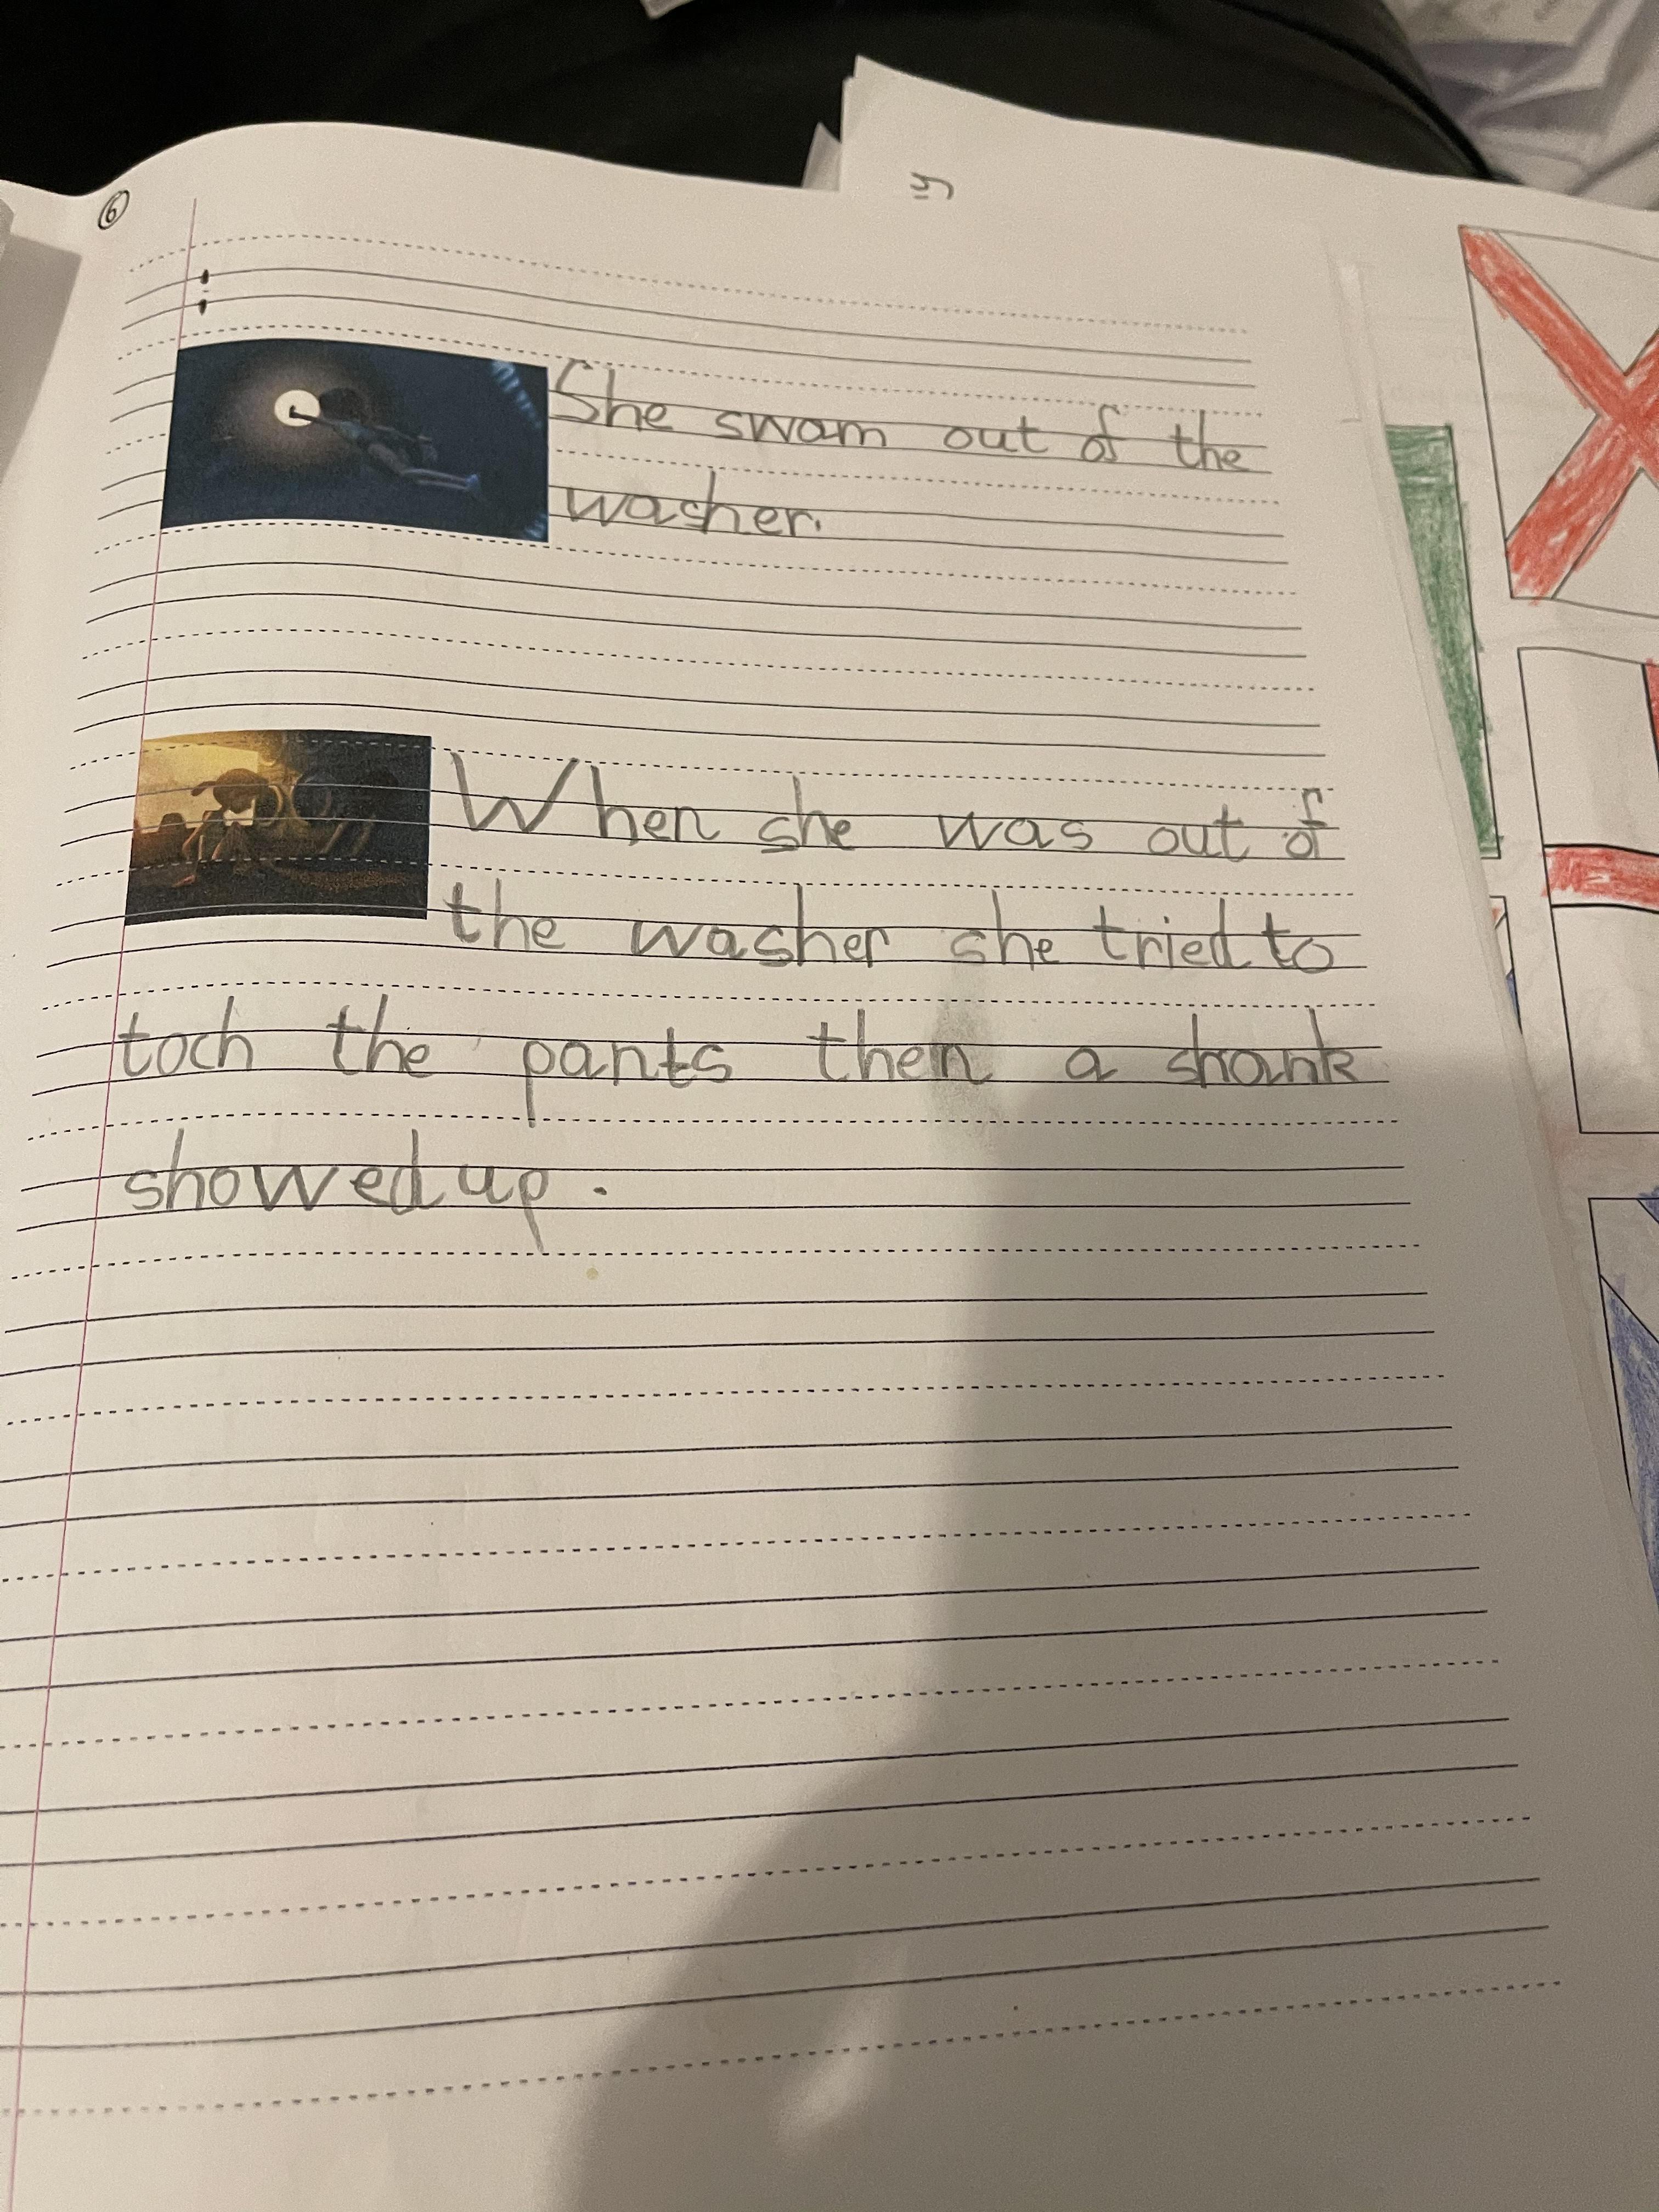 6
5
She swam out of the
washer.
When she was out of
the washer she tried to
toch the pants then a shank
showed up.